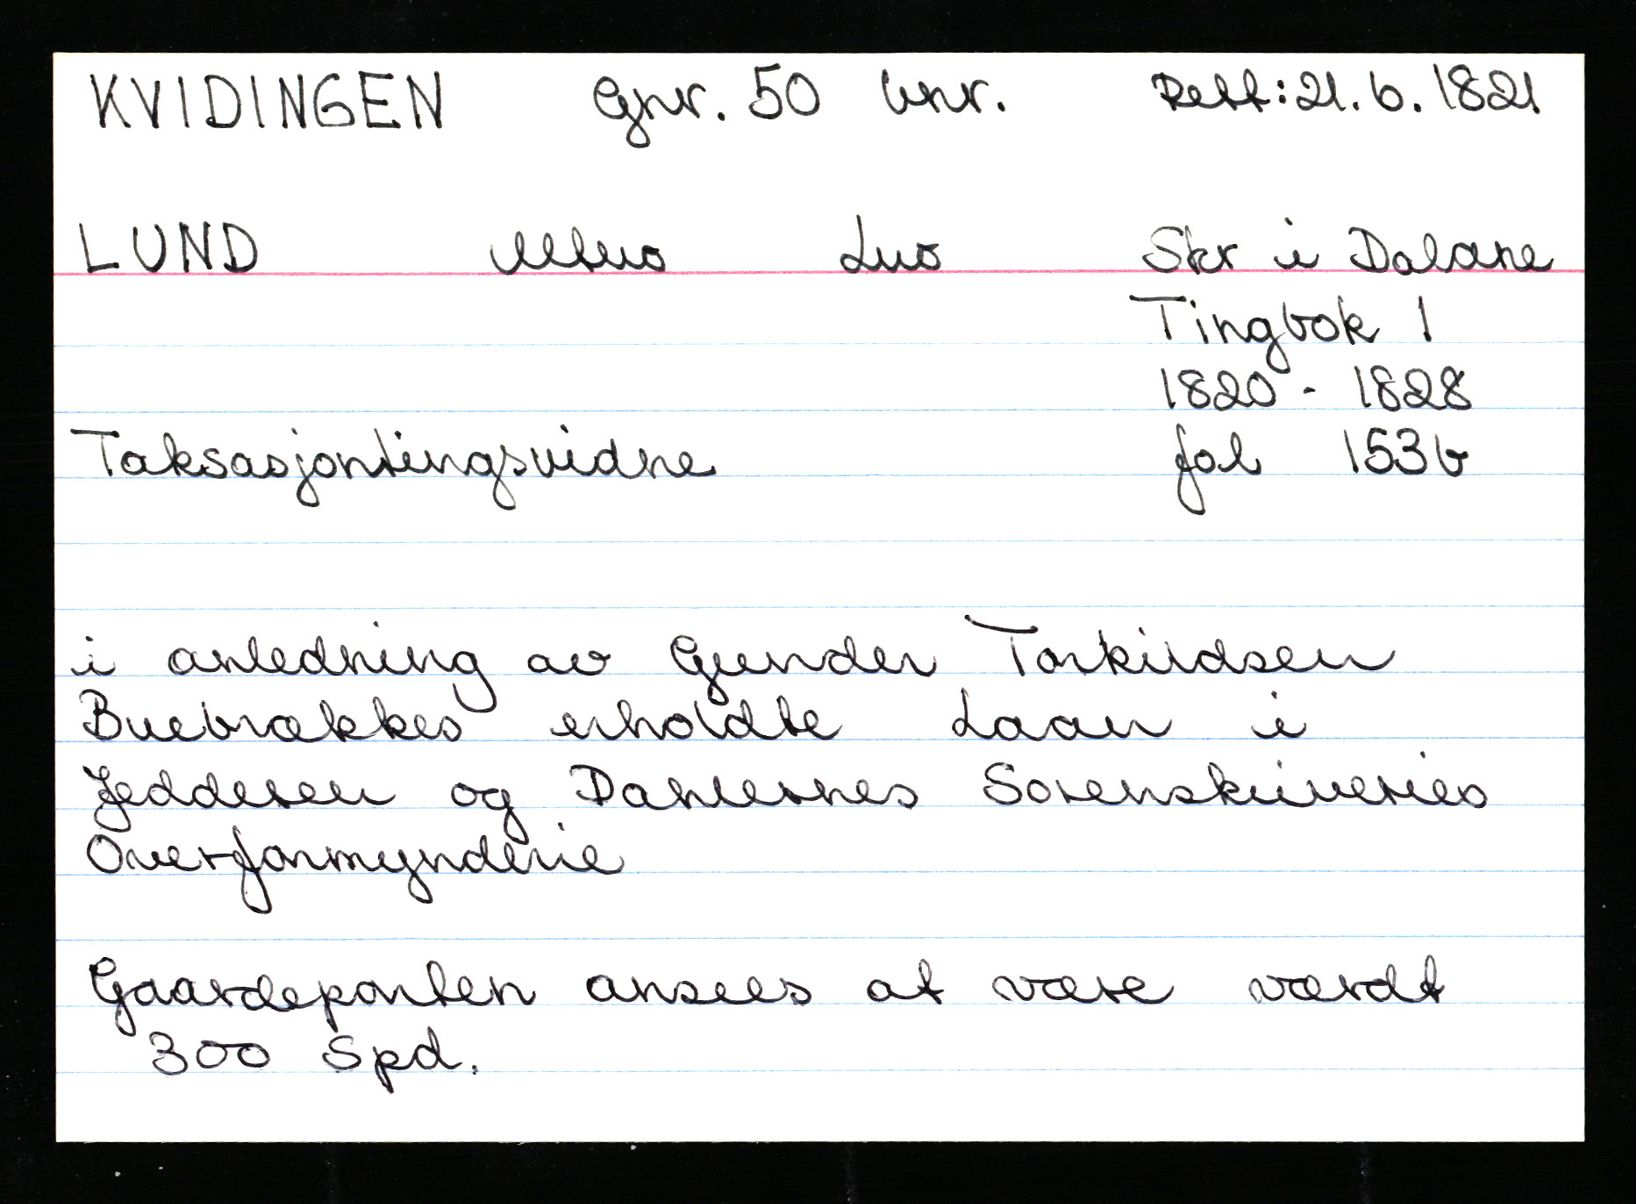 KVIDINGEN Gnr. 50 bnr. Rett: 21.6.1821
LUND Utsno Lno Skr i Dalane
Tingbok 1
1820 - 1828
Taksasjontingsvidne fol 153b
i anledning av Gunder Torkildsen
Buebrækkes erholdte Laan i
Jedderen og Dahlernes Sorenskriveries
Overformynderie
Gaardeparten ansees at være værdt
300 Spd.